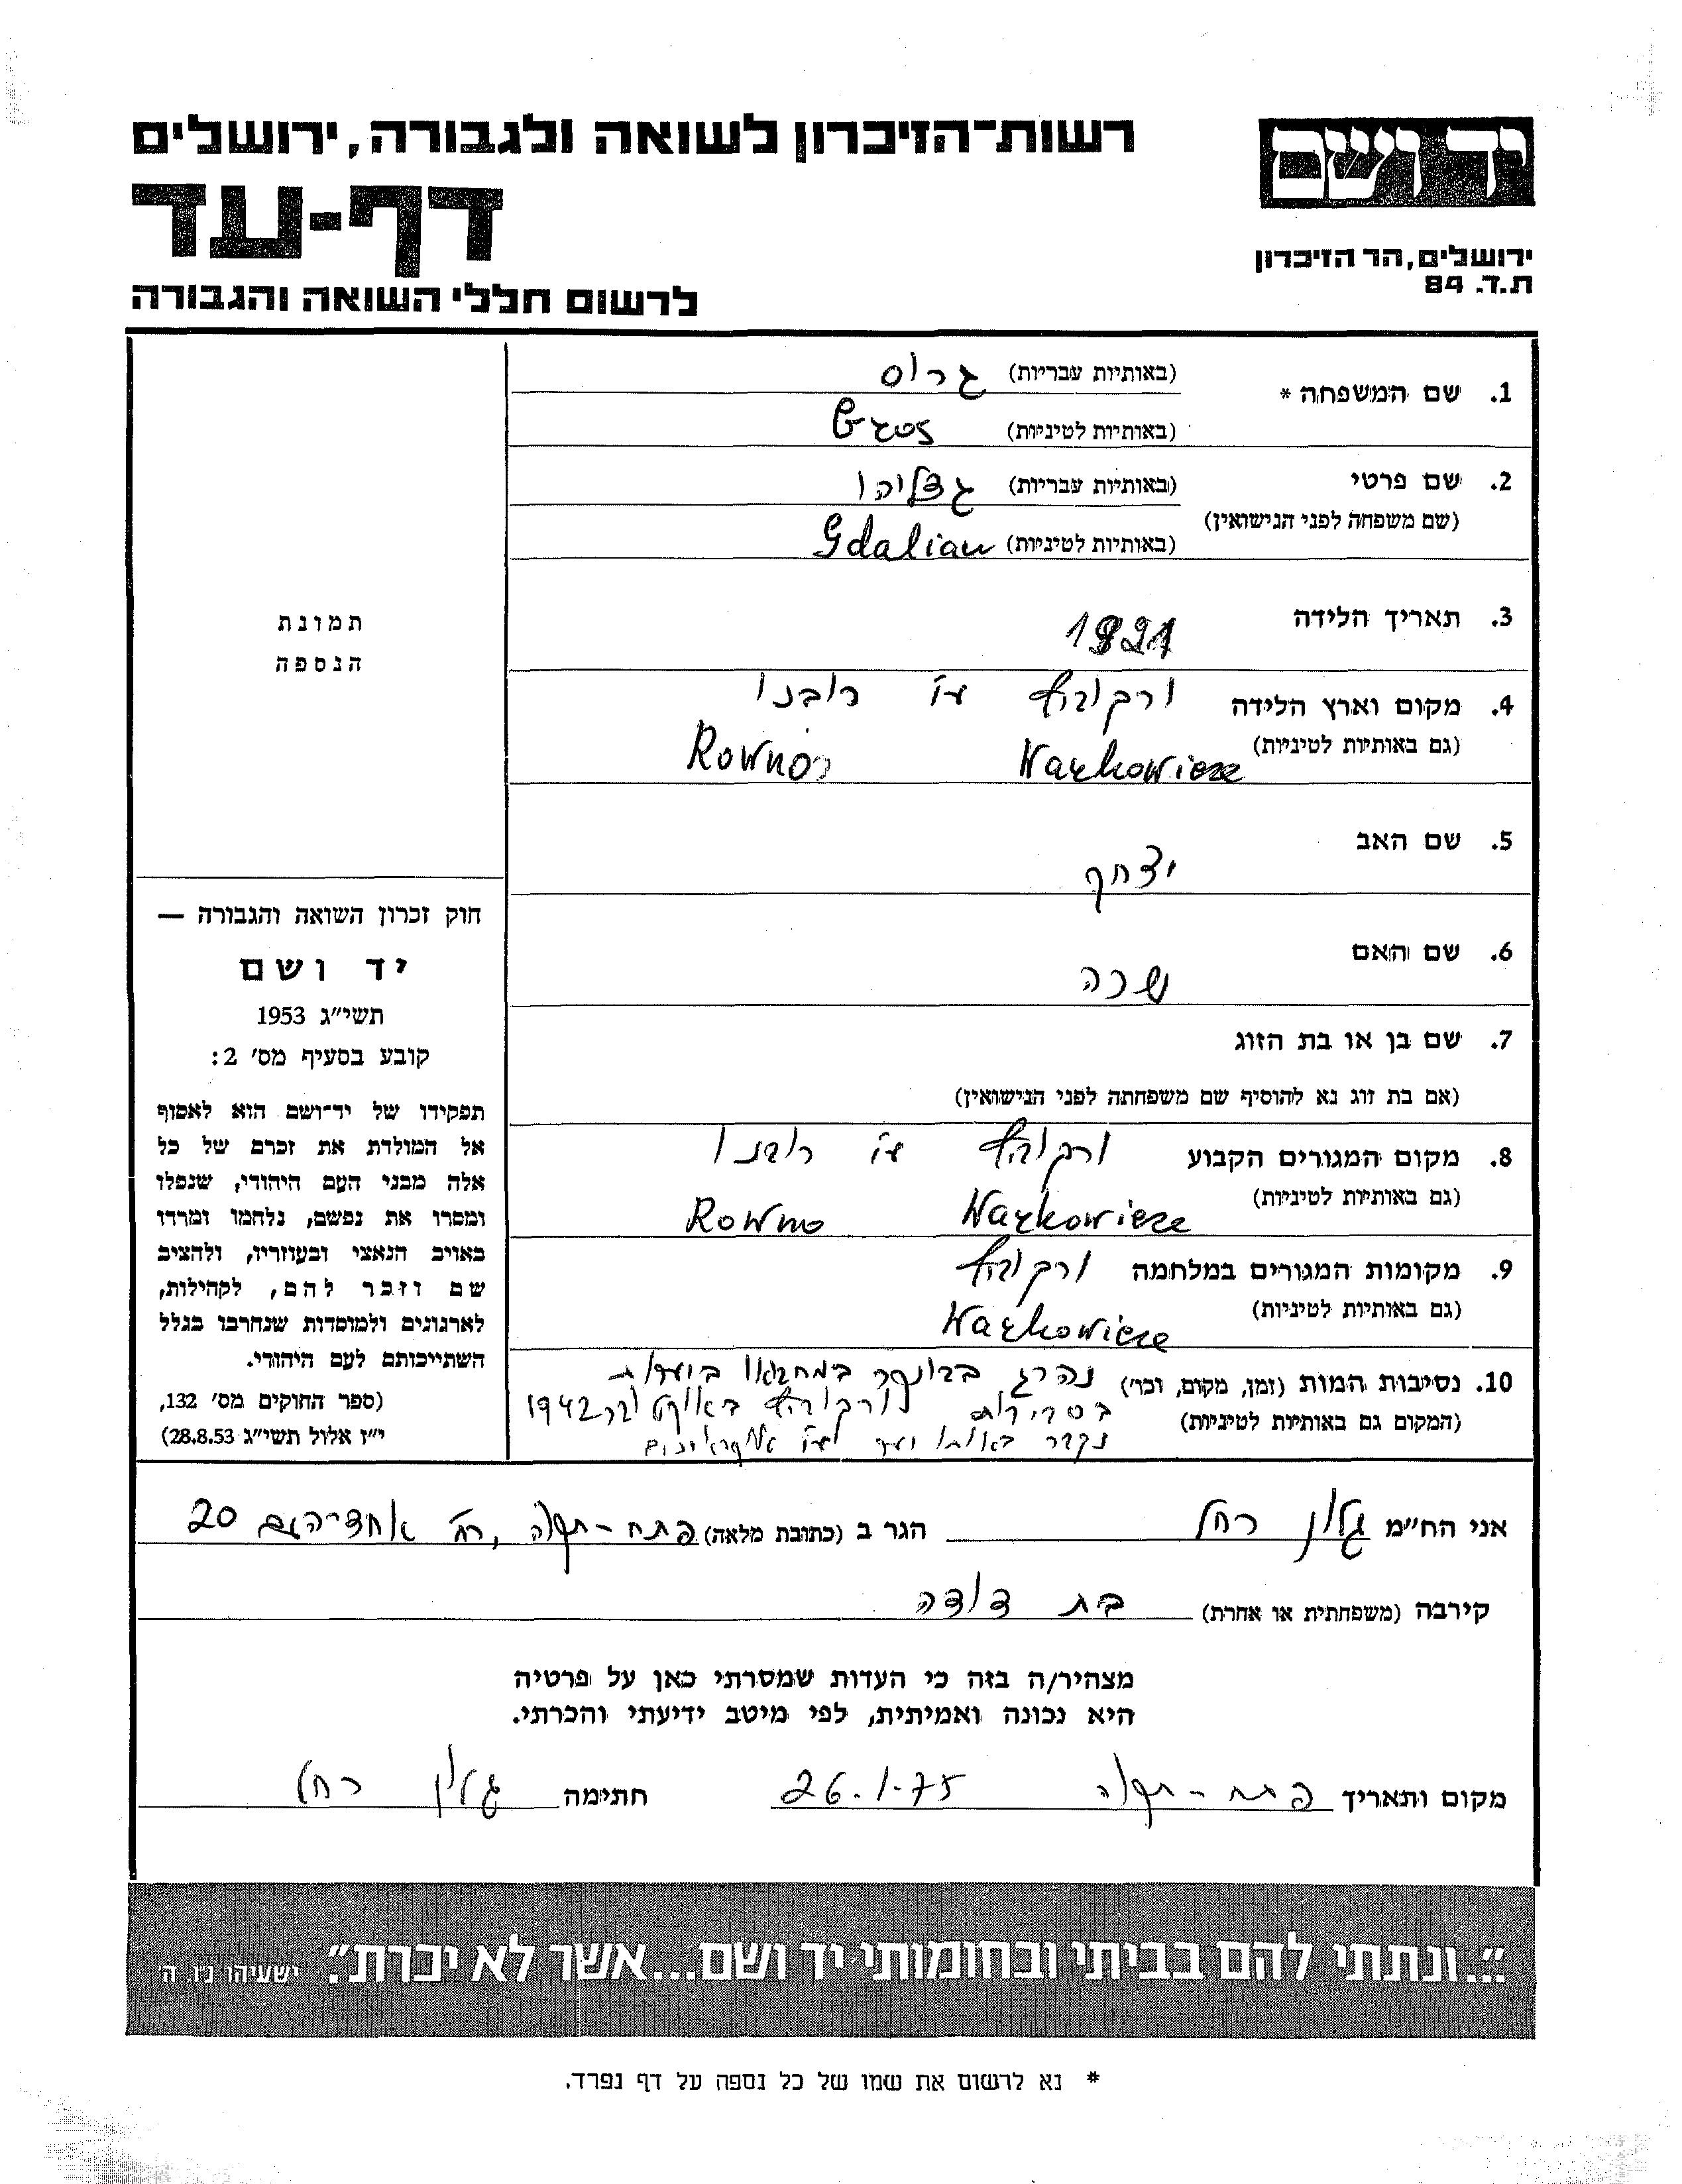 רשות־הזיכרון לשואה ולגבורה, ירושלים
יד ושם
דף-עד
ירושלים, הר הזיכרון
ת.ד. 84
לרשום חללי השואה והגבורה
1. שם המשפחה * (באותיות עבריות) גרוס
(באותיות לטיניות) Gros
2. שם פרטי (באותיות עבריות) גדליהו
(שם משפחה לפני הנישואין)
(באותיות לטיניות) Gdaliau
3. תאריך הלידה 1921
4. מקום וארץ הלידה ורקוביץ ע"י רובנו
(גם באותיות לטיניות) Warkowicze Rowno
5. שם האב יצחק
6. שם האם שרה
7. שם בן או בת הזוג
(אם בת זוג נא להוסיף שם משפחתה לפני הנישואין)
8. מקום המגורים הקבוע ורקוביץ ע"י רובנו
(גם באותיות לטיניות) Warkowicze Rowno
9. מקומות המגורים במלחמה ורקוביץ
(גם באותיות לטיניות) Warkowicze
10. נסיבות המות (זמן, מקום, וכו') נהרג בבונקר במחבואו ביערות
(המקום גם באותיות לטיניות) בסביבות ורקוביץ באוקטובר 1942
נקבר באותו יער ע"י אוקראינים
תמונת
הנספה
חוק זכרון השואה והגבורה —
יד ושם
תשי"ג 1953
קובע בסעיף מס' 2:
תפקידו של יד־ושם הוא לאסוף
אל המולדת את זכרם של כל
אלה מבני העם היהודי, שנפלו
ומסרו את נפשם, נלחמו ומרדו
באויב הנאצי ובעוזריו, ולהציב
שם וזכר להם, לקהילות,
לארגונים ולמוסדות שנחרבו בגלל
השתייכותם לעם היהודי.
(ספר החוקים מס' 132,
י"ז אלול תשי"ג 28.8.53)
אני הח"מ גלון רחל הגר ב (כתובת מלאה) פתח-תקוה, רח' אחד-העם 20
קירבה (משפחתית או אחרת) בת דודה
מצהיר/ה בזה כי העדות שמסרתי כאן על פרטיה
היא נכונה ואמיתית, לפי מיטב ידיעתי והכרתי.
מקום ותאריך פתח-תקוה 26.1.75 חתימה גלון רחל
"...ונתתי להם בביתי ובחומותי יד ושם...אשר לא יכרת". ישעיהו נ"ו, ה'
* נא לרשום את שמו של כל נספה על דף נפרד.